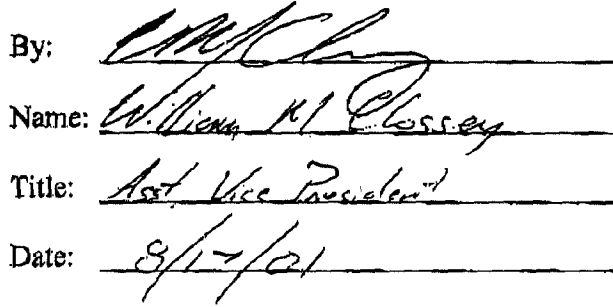 By:
Name: William M Clossey
Title: Asst. Vice President
Date: 8/17/01